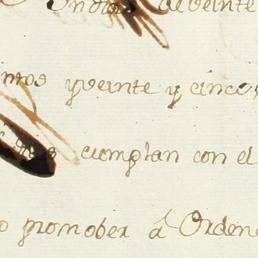 de veinte
yveinte y cinco
cumplan con el
promober â Ordene